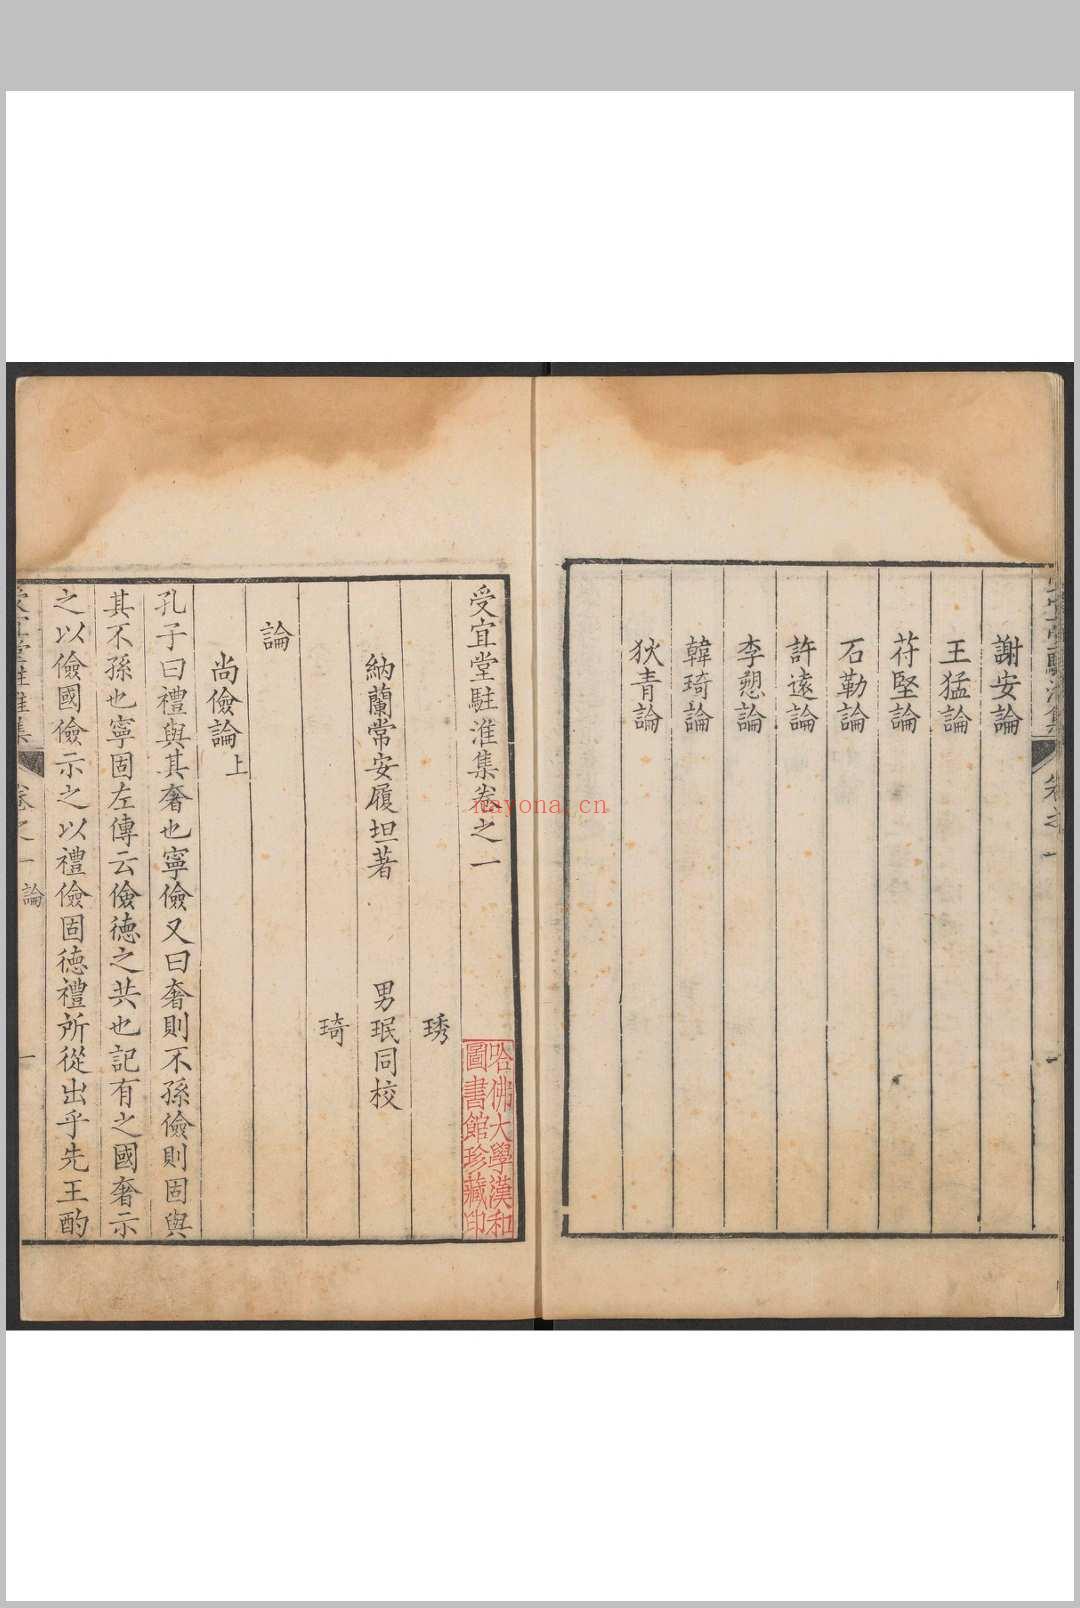 謝安論
王猛論
苻堅論
石勒論
許遠論
李愬論
韓琦論
狄青論
受宜堂駐淮集卷之一
琇
納蘭常安履坦著 男珉同校
琦
論
尚儉論上
孔子曰禮與其奢也寧儉又曰奢則不孫儉則固與
其不孫也寧固左傳云儉德之共也記有之國奢示
之以儉國儉示之以禮儉固德禮所從出乎先王酌
論
一
哈佛大學漢和
圖書館珍藏印
nayona.cn